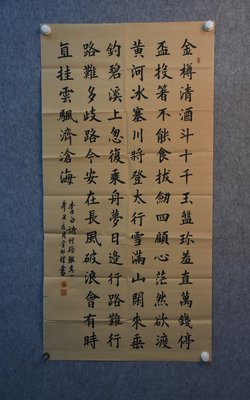 金樽清酒斗十千玉盤珍羞直萬錢停
盃投箸不能食拔劍四顧心茫然欲渡
黃河冰塞川將登太行雪滿山閑來垂
釣碧溪上忽復乘舟夢日邊行路難行
路難多歧路今安在長風破浪會有時
直挂雲颿濟滄海
李白詩行路難其一
辛丑夏月金書